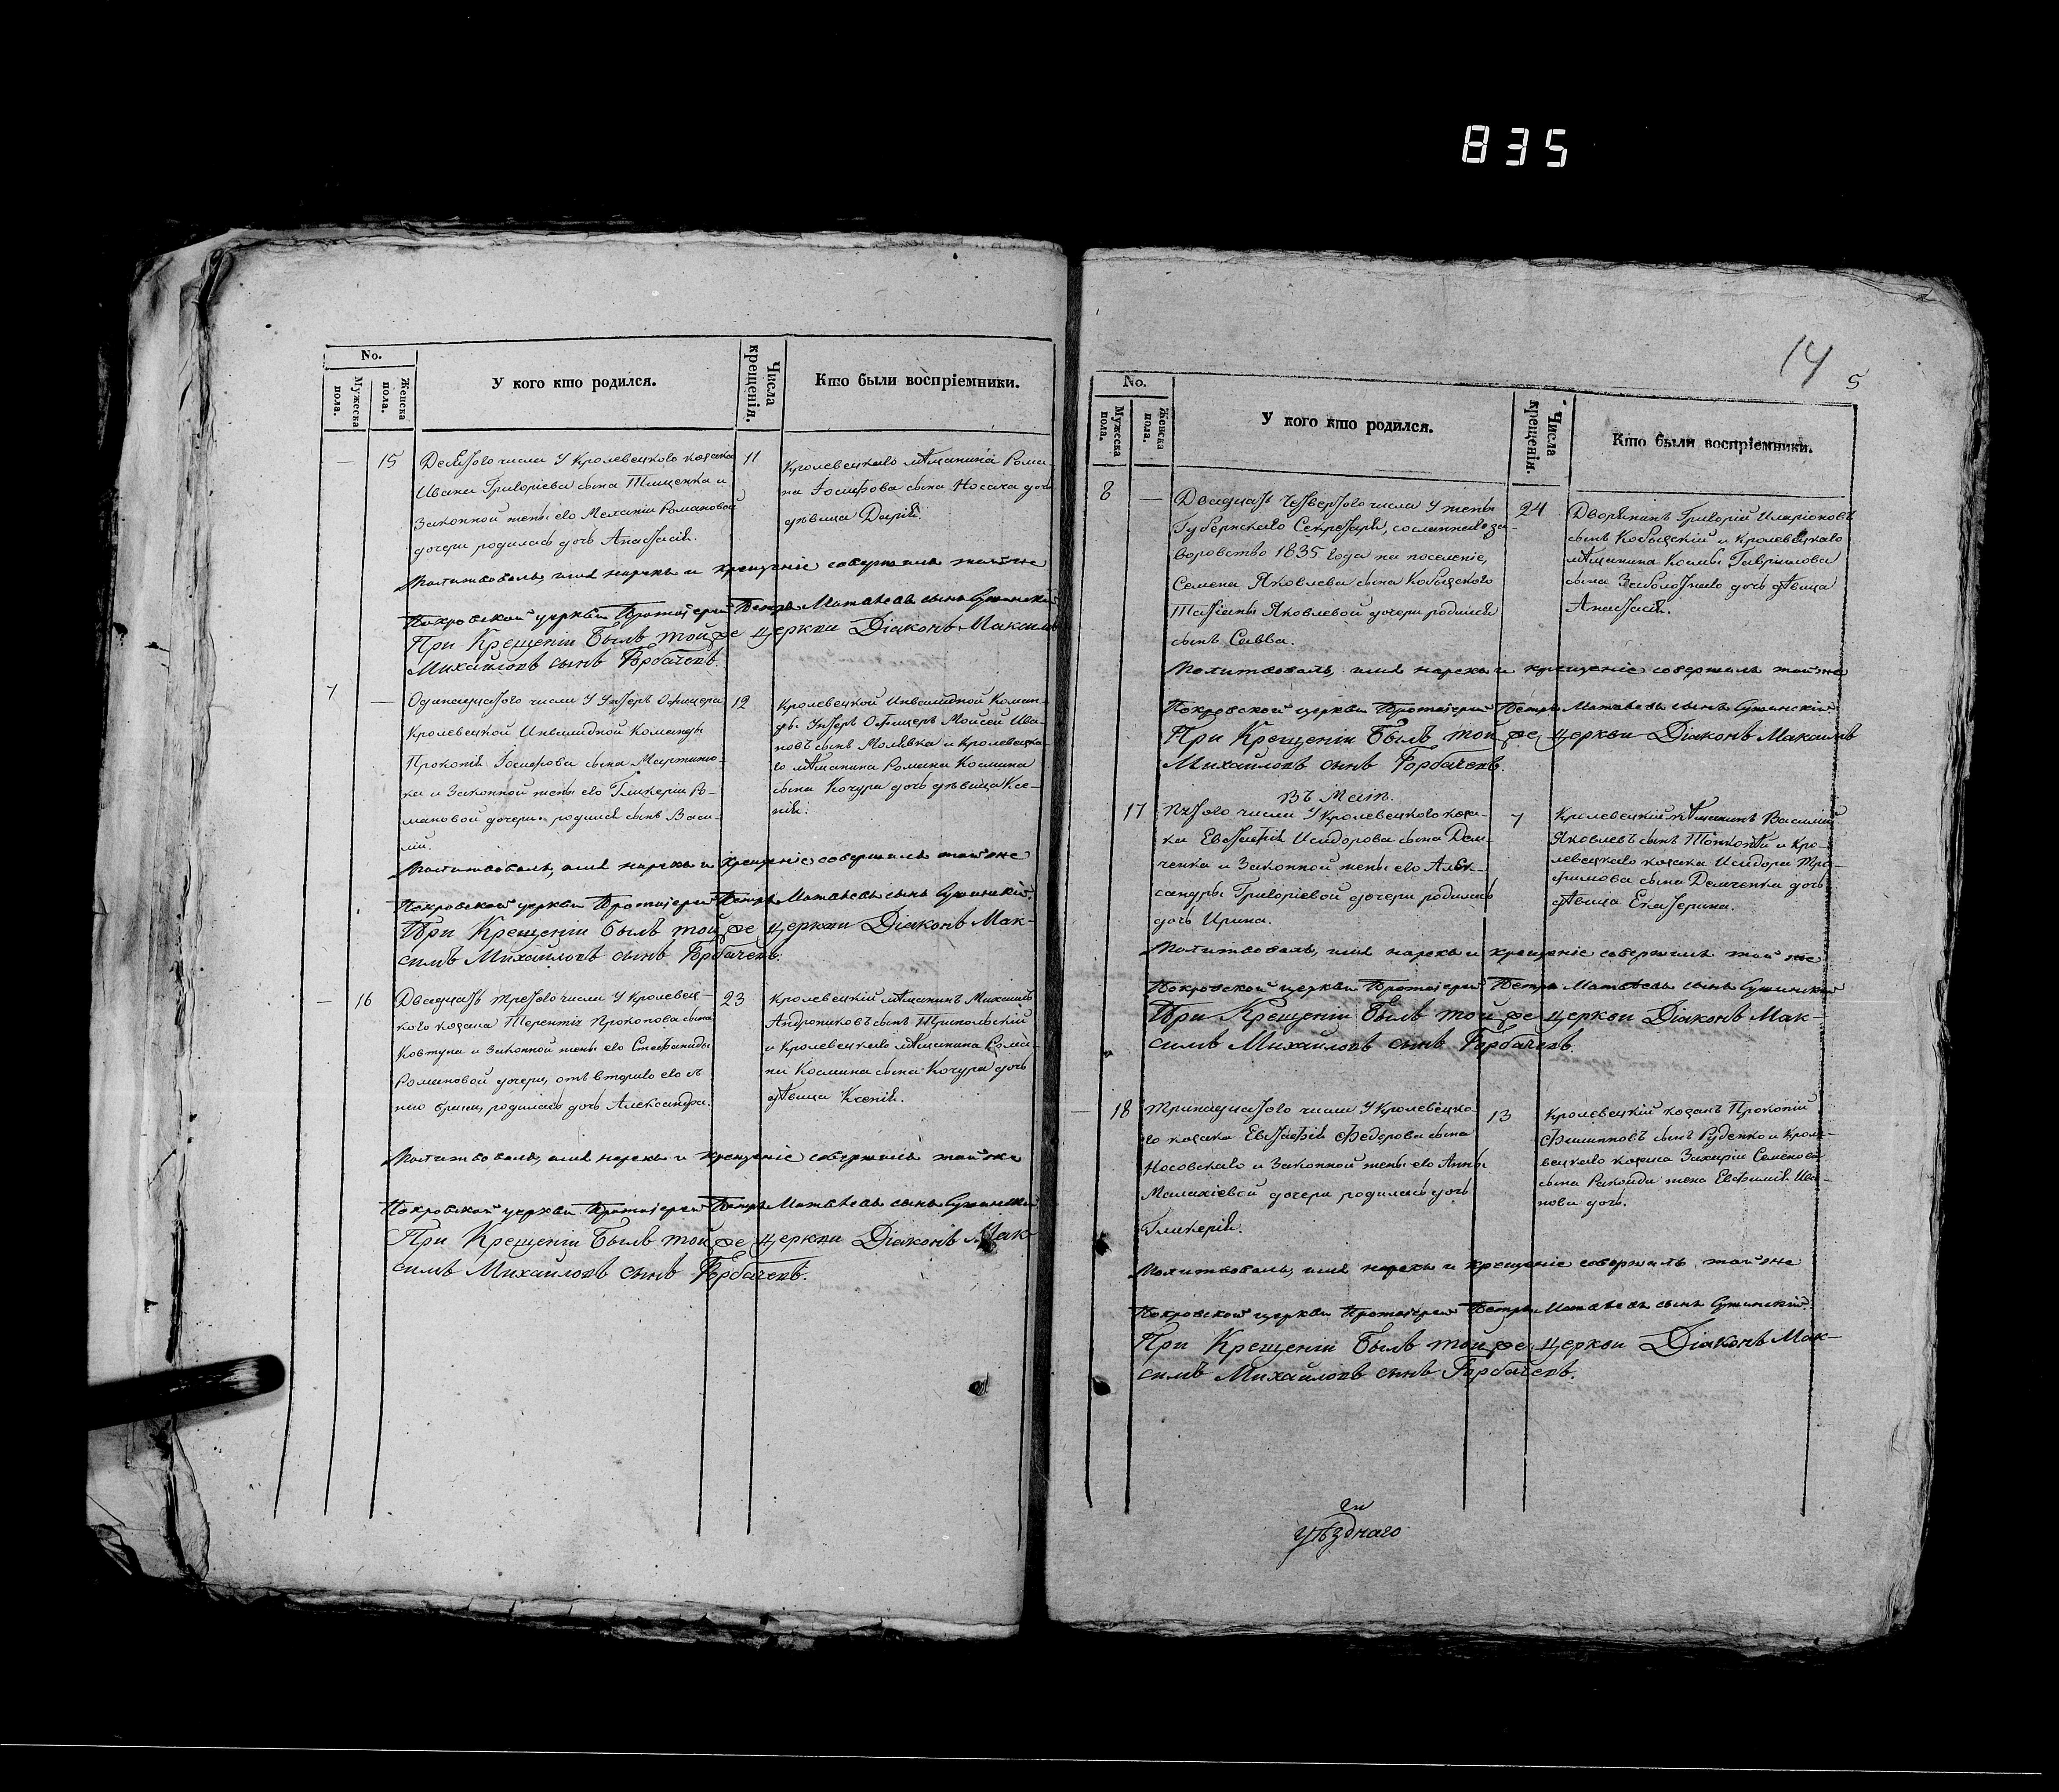 835
No.
Мужеска пола.
Женска пола.
У кого кто родился.
Числа крещенія.
Кто были воспріемники.
— 15 Десятого числа У Кролевецкого козака
Ивана Григоріева сына Тищенка и
Законной жены его Меланіи Романовой
дочери родилась дочь Анастасія.
11
Кролевецкаго мѣщанина Рома-
на Іосифова сына Носача дочь
дѣвица Дарія.
Молитвовалъ, имя нарекъ и крещеніе совершилъ той же
Покровской церкви Протоіерей Петръ Матвѣевъ сынъ
При Крещеніи былъ той же церкви Діаконъ Максимъ
Михайловъ сынъ Горбачевъ.
7 — Одинадцатого числа У Унтеръ Офицера
Кролевецкой Инвалидной Команды
Прокопія Іосифова сына Мартинно
ка и Законной жены его Гликеріи Ро-
мановой дочери родился сынъ Васи-
лій.
12
Кролевецкой Инвалидной Коман-
ды Унтеръ Офицеръ Моисей Ива-
новъ сынъ Молявка и Кролевецка-
го мѣщанина Романа Космина
сына Кочура дочь дѣвица Ксе-
нія.
Молитвовалъ, имя нарекъ и крещеніе совершилъ той же
Покровской церкви Протоіерей Петръ Матвѣевъ сынъ
При Крещеніи былъ той же церкви Діаконъ Мак-
симъ Михайловъ сынъ Горбачевъ.
— 16 Двадцать третого числа У Кролевец-
кого козака Терентія Прокопова сына
Ковтуна и Законной жены его Стефаниды
Романовой дочери, отъ второго его съ
нею брака, родилась дочь Александра.
23
Кролевецкій мѣщанинъ Михаилъ
Андрониковъ сынъ Трипольскій
и Кролевецкаго мѣщанина Рома-
на Космина сына Кочура дочь
дѣвица Ксенія.
Молитвовалъ, имя нарекъ и крещеніе совершилъ той же
Покровской церкви Протоіерей Петръ Матвѣевъ сынъ
При Крещеніи былъ той же церкви Діаконъ Мак-
симъ Михайловъ сынъ Горбачевъ.
14
5
No.
Мужеска пола.
Женска пола.
У кого кто родился.
Числа крещенія.
Кто были воспріемники.
8 — Двадцать Четвертого числа У жены
Губернскаго Секретаря, сосланнаго за
воровство 1835 года на поселеніе,
Семена Яковлева сына Кобыщского
Татіаны Яковлевой дочери родился
сынъ Савва.
24
Дворянинъ Григорій Иларіоновъ
сынъ Кобыщскій и Кролевецкаго
мѣщанина Космы Гаврилова
сына Заболотнаго дочь дѣвица
Анастасія.
Молитвовалъ, имя нарекъ и крещеніе совершилъ той же
Покровской церкви Протоіерей Петръ Матвѣевъ сынъ
При Крещеніи былъ той же церкви Діаконъ Максимъ
Михайловъ сынъ Горбачевъ.
Въ Маіи.
17 Пятого числа У Кролевецкого коза-
ка Евстафія Исидорова сына Дем-
ченка и Законной жены его Алек-
сандры Григоріевой дочери родилась
дочь Ирина.
7
Кролевецкій мѣщанинъ Василій
Яковлевъ сынъ и Кро-
левецкаго козака Исидора Тро-
фимова сына Демченка дочь
дѣвица Екатерина.
Молитвовалъ, имя нарекъ и крещеніе совершилъ той же
Покровской церкви Протоіерей Петръ Матвѣевъ сынъ
При Крещеніи былъ той же церкви Діаконъ Мак-
симъ Михайловъ сынъ Горбачевъ.
— 18 Тринадцатого числа У Кролевецко-
го козака Евстафія Федорова сына
Носовскаго и Законной жены его Анны
Малахіевой дочери родилась дочь
Гликерія.
13
Кролевецкій козакъ Прокопій
Филипповъ сынъ Руденко и Кроле-
вецкаго козака Захарія Семенова
сына Ракойда жена Евфимія Ива-
нова дочь.
Молитвовалъ, имя нарекъ и крещеніе совершилъ той же
Покровской церкви Протоіерей Петръ Матвѣевъ сынъ
При Крещеніи былъ той же церкви Діаконъ Мак-
симъ Михайловъ сынъ Горбачевъ.
уѣзднаго